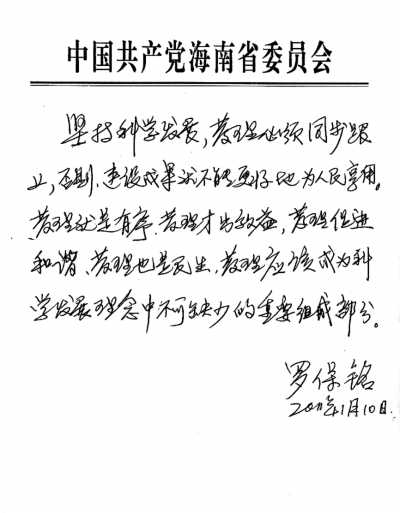 中国共产党海南省委员会
坚持科学发展,管理必须同步跟
上,否则、建设成果就不能更好地为人民享用。
管理就是有序、管理才出效益,管理促进
和谐、管理也是民生,管理应该成为科
学发展理念中不可缺少的重要组成部分。
罗保铭
2011年1月10日.